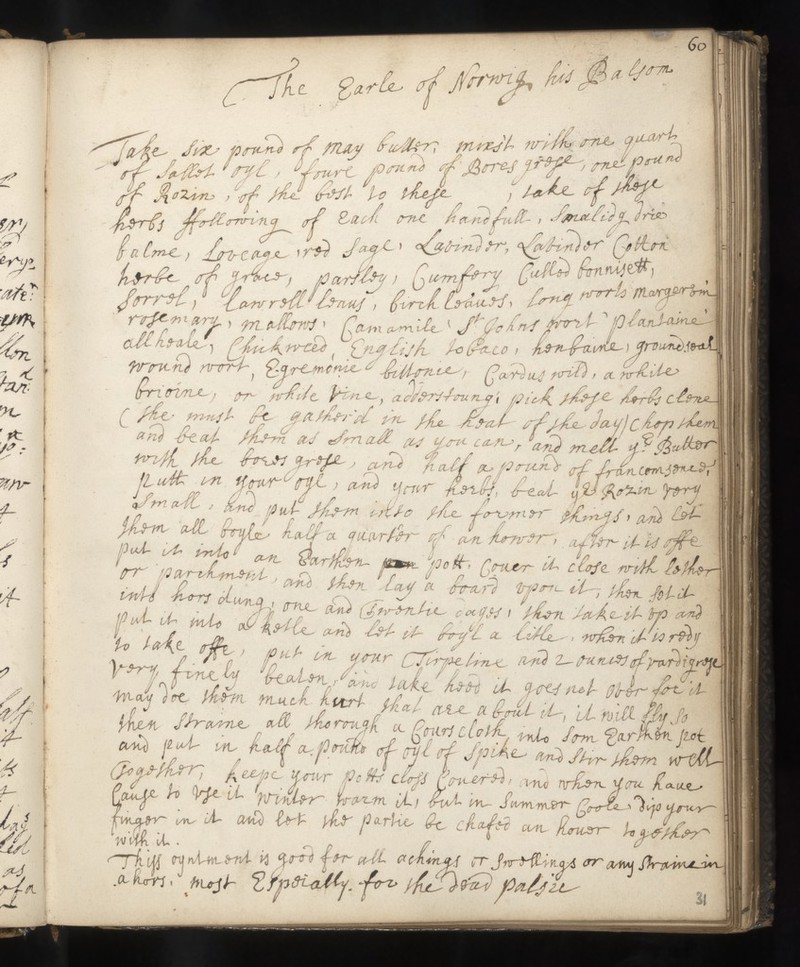 60
The Earle of Norwig his Balsom
Take six pound of may butter, mixst with one quart
of Sallet oyl, foure pound of Bores grese, one pound
of Rozin, of the best to these , take of these
herbs ffollowing of Each one handfull, Smalidg drie
balme, Loveage, red Sage, Lavinder, Lavinder Cotton
herbe of grace, parsley, Cumfery Culled bonnisett,
Sorrel, lawrell leaus, birch leaues, long worts margerom
rosemary, mallows, Camamile, St Johns wort plantaine
allheale, Chickweed, English tobaco, henbaine, ground seal
wound wort, Egremonie bittonie, Cardus wild, a white
brioine, or white vine, adderstoung, pick these herbs clene
(the must be gather'd in the heat of the day) chop them
and beat them as small as you can, and melt ye Butter
with the bores grese, and half a pound of francomsence,
putt in your oyl, and your herbs, beat ye Rozin very
Small, and put them into the former things, and let
them all boyle half a quarter of an hower, after it is offe
put it into an Earthen pott. Couer it close with lether
or parchment, and then lay a board vpon it, then set it
into hors dung, one and Twentie dayes, then take it vp and
put it into a ketle and let it boyl a litle, when it is redy
to take offe, put in your Tirpetine and 2 ounces of vardigrese
very finely beaten, and take heed it goes not over for it
may doe them much hurt that are about it, it will fly so
then straine all thorough a Cours cloth, into som Earthen pot
and put in half a pound of oyl of Spike and Stir them well
Together, keepe your potts closs Couered, and when you haue
Cause to vse it winter warm it, but in Summer Coole dip your
finger in it and let the partie be chafed an houer together
with it.
This oyntment is good for all achings or swellings or any straine in
a hors, most Espcially for the dead palsie
31